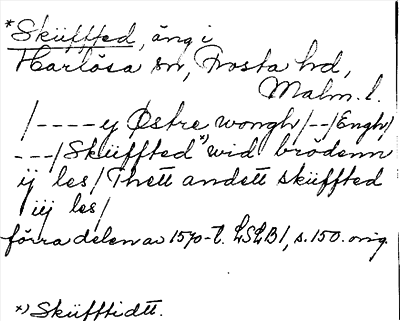 *Sküffted, äng i
Harlösa sn, Frosta hd,
Malm. l.
/----y Østre wongh/--/Engh/
---/Sküffted*) wid brödenn
ij les/Thett andett sküffted
iij les/
förra delen av 1570-t. LSLB1, s. 150. orig.
*) Sküfftidtt.